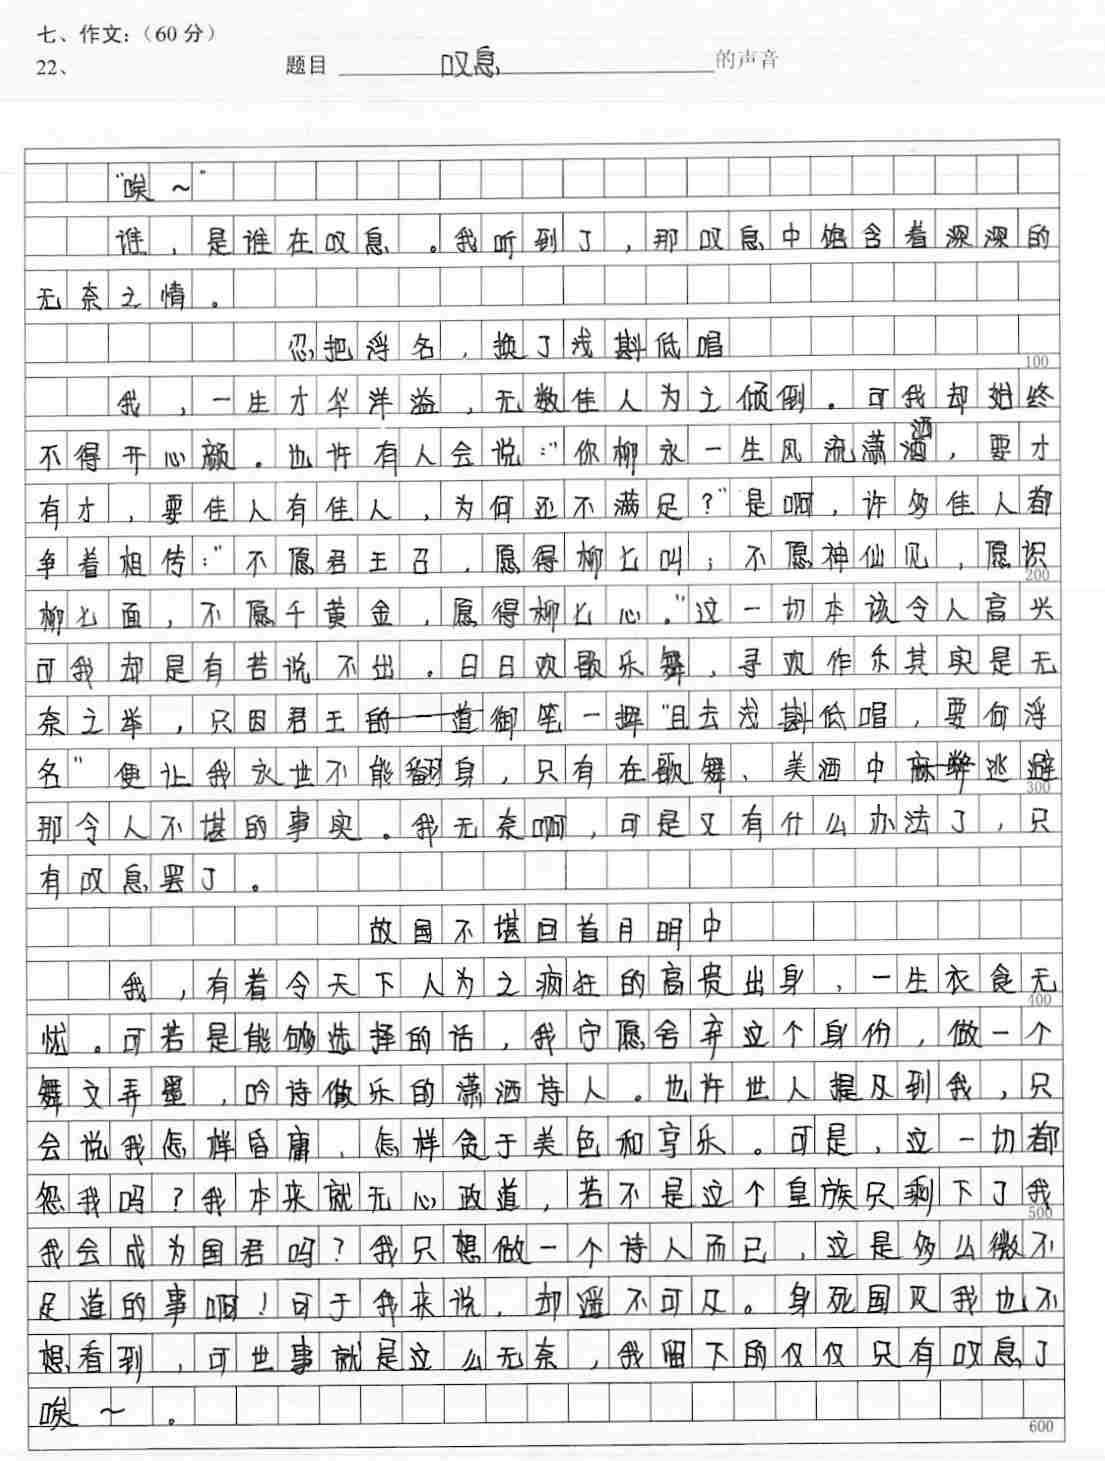 七、作文:（60 分）
22、 题目 叹息 的声音
"唉～"
谁，是谁在叹息。我听到了，那叹息中饱含着深深的
无奈之情。
忍把浮名，换了浅斟低唱
100
我，一生才华洋溢，无数佳人为之倾倒。可我却始终
不得开心颜。也许有人会说："你柳永一生风流潇洒，要才
有才，要佳人有佳人，为何还不满足？"是啊，许多佳人都
争着相传："不愿君王召，愿得柳七叫；不愿神仙见，愿识
200
柳七面，不愿千黄金，愿得柳七心。"这一切本该令人高兴
可我却是有苦说不出。日日欢歌乐舞，寻欢作乐其实是无
奈之举，只因君王御笔一挥"且去浅斟低唱，要何浮
名"便让我永世不能翻身，只有在歌舞、美酒中逃避
300
那令人不堪的事实。我无奈啊，可是又有什么办法了，只
有叹息罢了。
故国不堪回首月明中
我，有着令天下人为之疯狂的高贵出身，一生衣食无
400
忧。可若是能够选择的话，我宁愿舍弃这个身份，做一个
舞文弄墨，吟诗做乐的潇洒诗人。也许世人提及到我，只
会说我怎样昏庸，怎样贪于美色和享乐。可是，这一切都
怨我吗？我本来就无心政道，若不是这个皇族只剩下了我
500
我会成为国君吗？我只想做一个诗人而已，这是多么微不
足道的事啊！可于我来说，却遥不可及。身死国灭我也不
想看到，可世事就是这么无奈，我留下的仅仅只有叹息了
唉～。
600